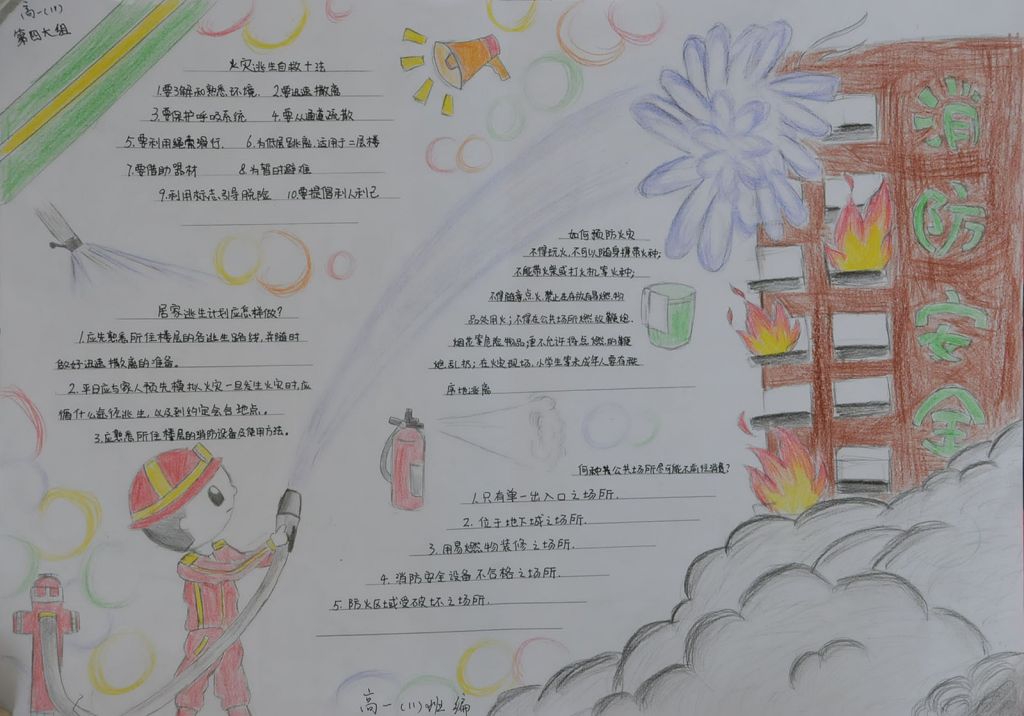 高一(11)
第四大组
火灾逃生自救十法
1.要了解和熟悉环境. 2.要迅速撤离
3.要保护呼吸系统 4.要从通道疏散
5.要利用绳索滑行. 6.为低层跳离,适用于二层楼
7.要借助器材 8.为暂时避难
9.利用标志引导脱险 10.要提倡利人利己
居家逃生计划应怎样做?
1.应先熟悉所住楼层的各逃生路线,并随时
做好迅速撤离的准备。
2.平日应与家人预先模拟火灾一旦发生火灾时,应
循什么途径逃生,以及到约定会合地点。
3.应熟悉所住楼层的消防设备及使用方法。
如何预防火灾
不得玩火,不可以随身携带火种;
不能带火柴或打火机等火种;
不得随意点火,禁止在存放易燃物
品处用火;不得在公共场所燃放鞭炮.
烟花等危险物品;更不允许将点燃的鞭
炮乱扔;在火灾现场,小学生等未成年人要有秩
序地逃离
何种类公共场所尽可能不前往消费?
1.只有单一出入口之场所.
2.位于地下城之场所.
3.用易燃物装修之场所.
4.消防安全设备不合格之场所.
5.防火区域受破坏之场所.
消防安全
高一(11)班编